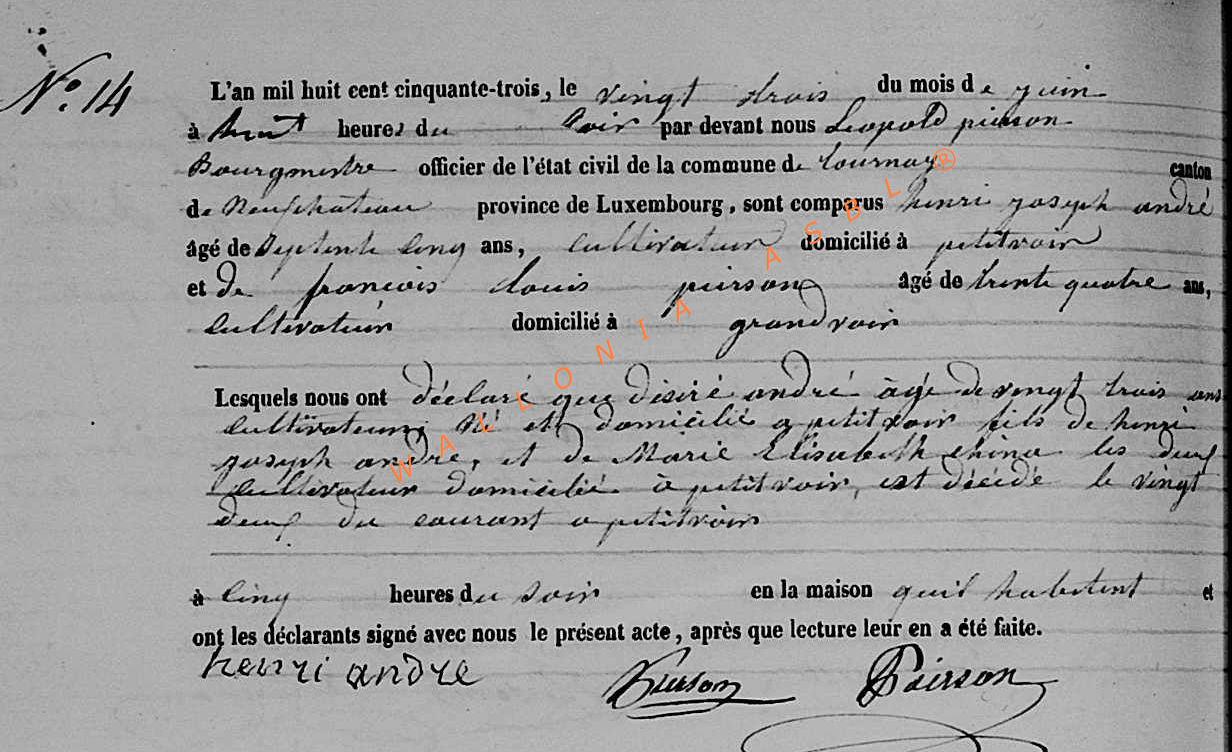 N°. 14
L'an mil huit cent cinquante-trois, le vingt trois du mois de juin
à huit heures du soir par devant nous Leopold pierson
Bourgmestre officier de l'état civil de la commune de tournay canton
de Neufchateau province de Luxembourg, sont comparus henri joseph andré
âgé de Septente cinq ans, cultivateur domicilié à petitvoir
et de francois Louis pierson âgé de trente quatre ans,
cultivateur domicilié à grandvoir
Lesquels nous ont déclaré que désiré andré âgé de vingt trois ans
cultivateur né et domicilié a petitvoir fils de henri
joseph andré, et de Marie Elisabeth china les deux
cultivateur domicilié à petitvoir, est décédé le vingt
deux du courant a petitvoir
à cinq heures du soir en la maison quil habitent et
ont les déclarants signé avec nous le présent acte, après que lecture leur en a été faite.
henri andre Pierson Pierson
WALLONIA ASBL®